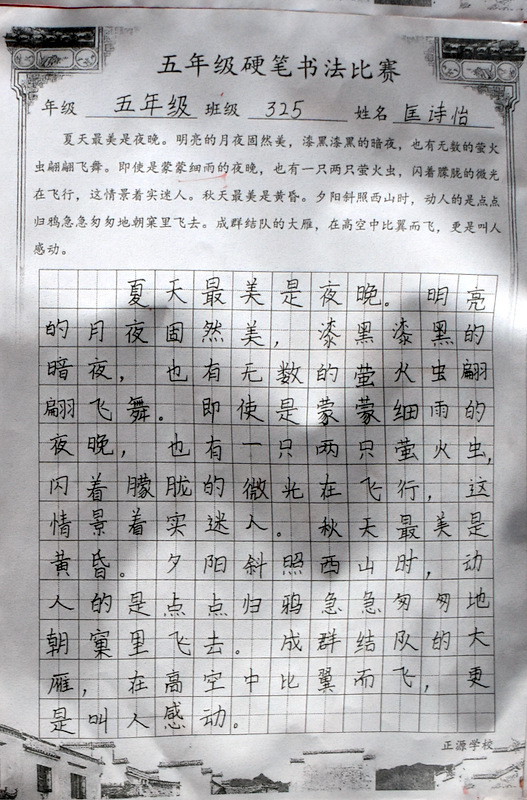 五年级硬笔书法比赛
年级 五年级 班级 325 姓名 匡诗怡
夏天最美是夜晚。明亮的月夜固然美，漆黑漆黑的暗夜，也有无数的萤火
虫翩翩飞舞。即使是蒙蒙细雨的夜晚，也有一只两只萤火虫，闪着朦胧的微光
在飞行，这情景着实迷人。秋天最美是黄昏。夕阳斜照西山时，动人的是点点
归鸦急急匆匆地朝窠里飞去。成群结队的大雁，在高空中比翼而飞，更是叫人
感动。
夏天最美是夜晚。明亮
的月夜固然美，漆黑漆黑的
暗夜，也有无数的萤火虫翩
翩飞舞。即使是蒙蒙细雨的
夜晚，也有一只两只萤火虫，
闪着朦胧的微光在飞行，这
情景着实迷人。秋天最美是
黄昏。夕阳斜照西山时，动
人的是点点归鸦急急匆匆地
朝窠里飞去。成群结队的大
雁，在高空中比翼而飞，更
是叫人感动。
正源学校